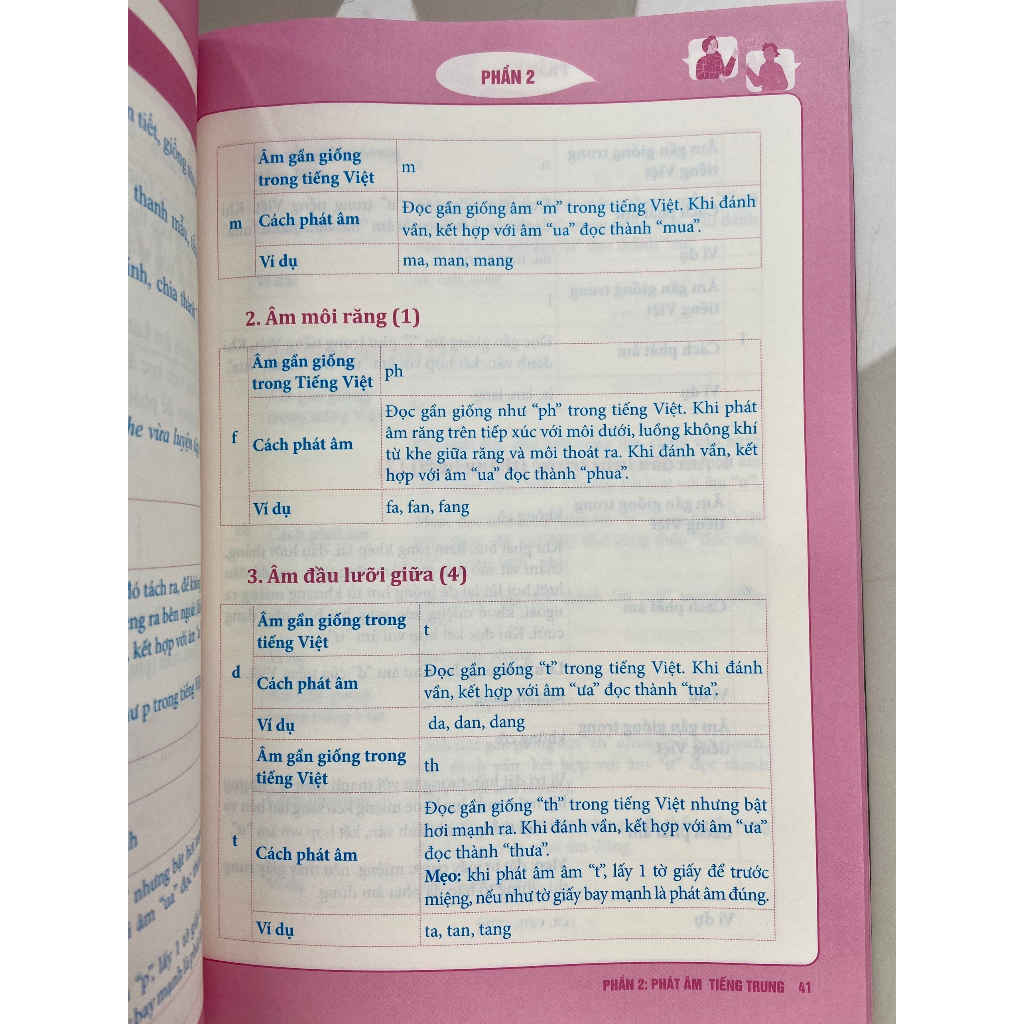 PHẦN 2
m
Âm gần giống
trong tiếng Việt
m
Cách phát âm
Đọc gần giống âm “m” trong tiếng Việt. Khi đánh
vần, kết hợp với âm “ua” đọc thành “mua”.
Ví dụ
ma, man, mang
2. Âm môi răng (1)
f
Âm gần giống
trong Tiếng Việt
ph
Cách phát âm
Đọc gần giống như “ph” trong tiếng Việt. Khi phát
âm răng trên tiếp xúc với môi dưới, luồng không khí
từ khe giữa răng và môi thoát ra. Khi đánh vần, kết
hợp với âm “ua” đọc thành “phua”.
Ví dụ
fa, fan, fang
3. Âm đầu lưỡi giữa (4)
d
Âm gần giống trong
tiếng Việt
t
Cách phát âm
Đọc gần giống “t” trong tiếng Việt. Khi đánh
vần, kết hợp với âm “ưa” đọc thành “tưa”.
Ví dụ
da, dan, dang
t
Âm gần giống trong
tiếng Việt
th
Cách phát âm
Đọc gần giống “th” trong tiếng Việt nhưng bật
hơi mạnh ra. Khi đánh vần, kết hợp với âm “ưa”
đọc thành “thưa”.
Mẹo: khi phát âm âm “t”, lấy 1 tờ giấy để trước
miệng, nếu như tờ giấy bay mạnh là phát âm đúng.
Ví dụ
ta, tan, tang
PHẦN 2: PHÁT ÂM TIẾNG TRUNG 41